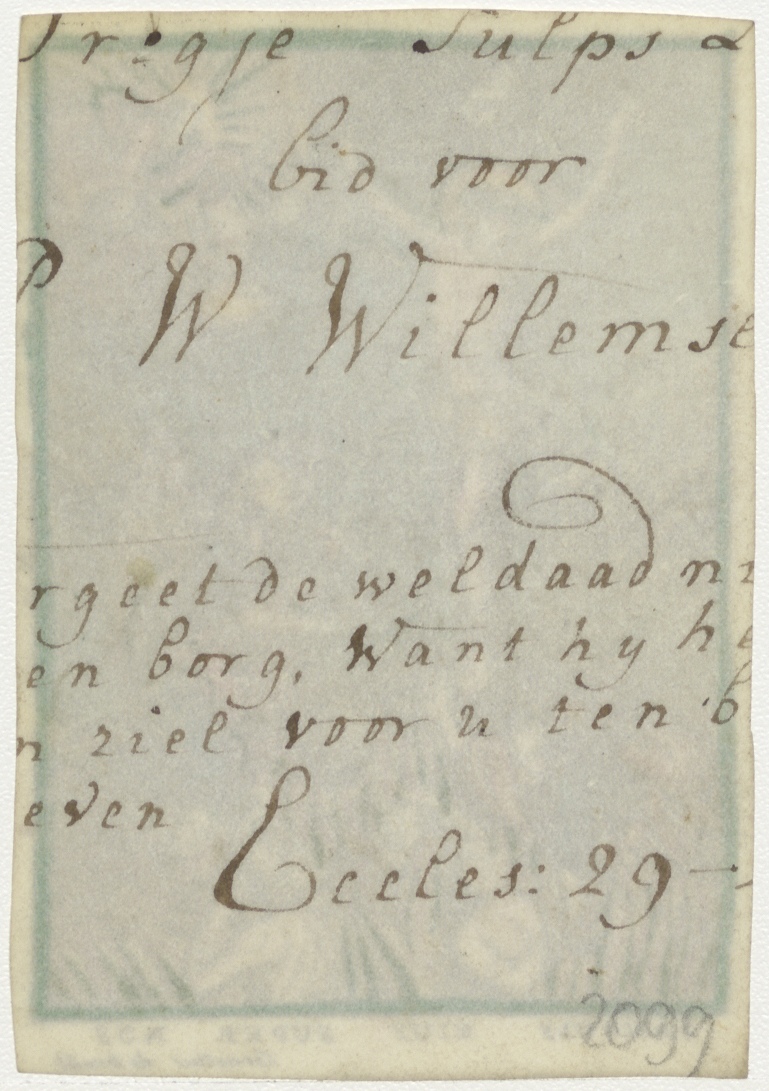 Trogje Sulps &
bid voor
P W Willemse
rgeet de weldaad n
en borg, Want hy he
n ziel voor u ten b
even
Eccles: 29
2099